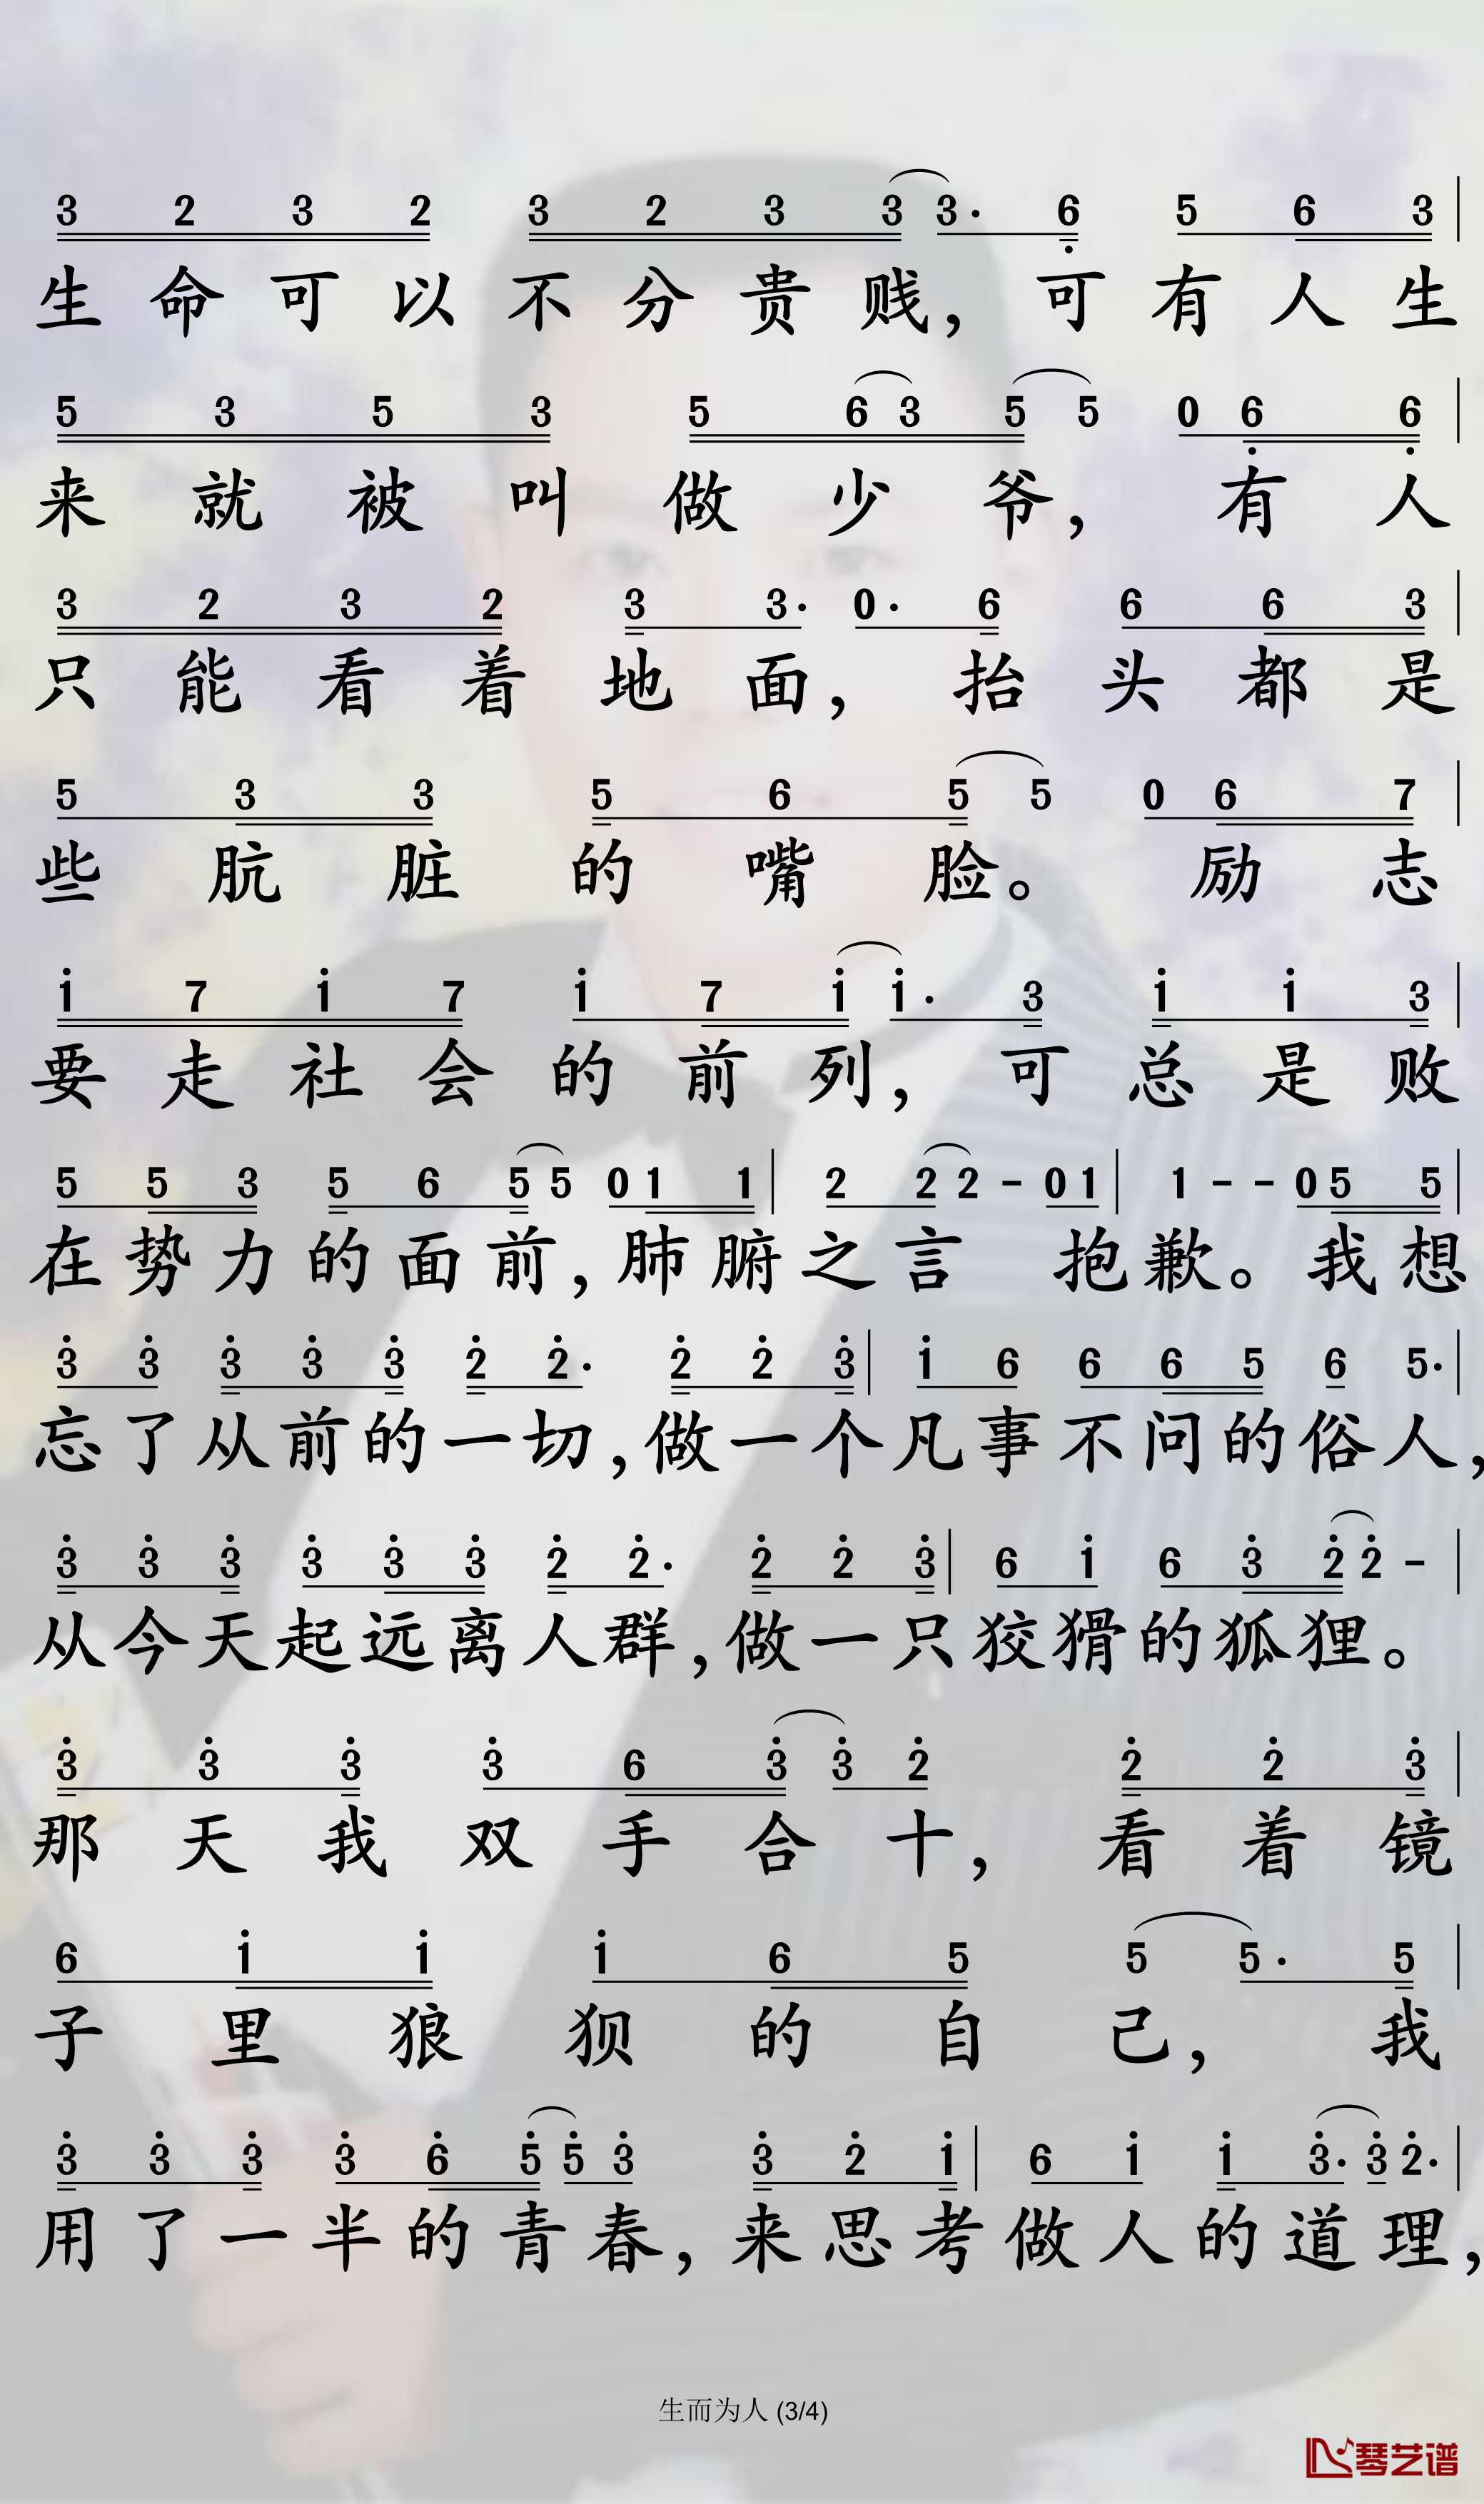 3 2 3 2 3 2 3 3 3· 6 5 6 3
生命可以不分贵贱，可有人生
5 3 5 3 5 6 3 5 5 0 6 6
来就被叫做少爷，有人
3 2 3 2 3 3· 0· 6 6 6 3
只能看着地面，抬头都是
5 3 3 5 6 5 5 0 6 7
些肮脏的嘴脸。励志
1 7 1 7 1 7 1 1· 3 1 1 3
要走社会的前列，可总是败
5 5 3 5 6 5 5 0 1 1 2 2 2 - 0 1 1 - - 0 5 5
在势力的面前，肺腑之言 抱歉。我想
3 3 3 3 3 2 2· 2 2 3 1 6 6 6 5 6 5·
忘了从前的一切，做一个凡事不问的俗人，
3 3 3 3 3 3 2 2· 2 2 3 6 1 6 3 2 2 -
从今天起远离人群，做一只狡猾的狐狸。
3 3 3 3 6 3 3 2 2 2 3
那天我双手合十，看着镜
6 1 1 1 6 5 5 5· 5
子里狼狈的自己，我
3 3 3 3 6 5 5 3 3 2 1 6 1 1 3· 3 2·
用了一半的青春，来思考做人的道理，
生而为人 (3/4)
琴艺谱